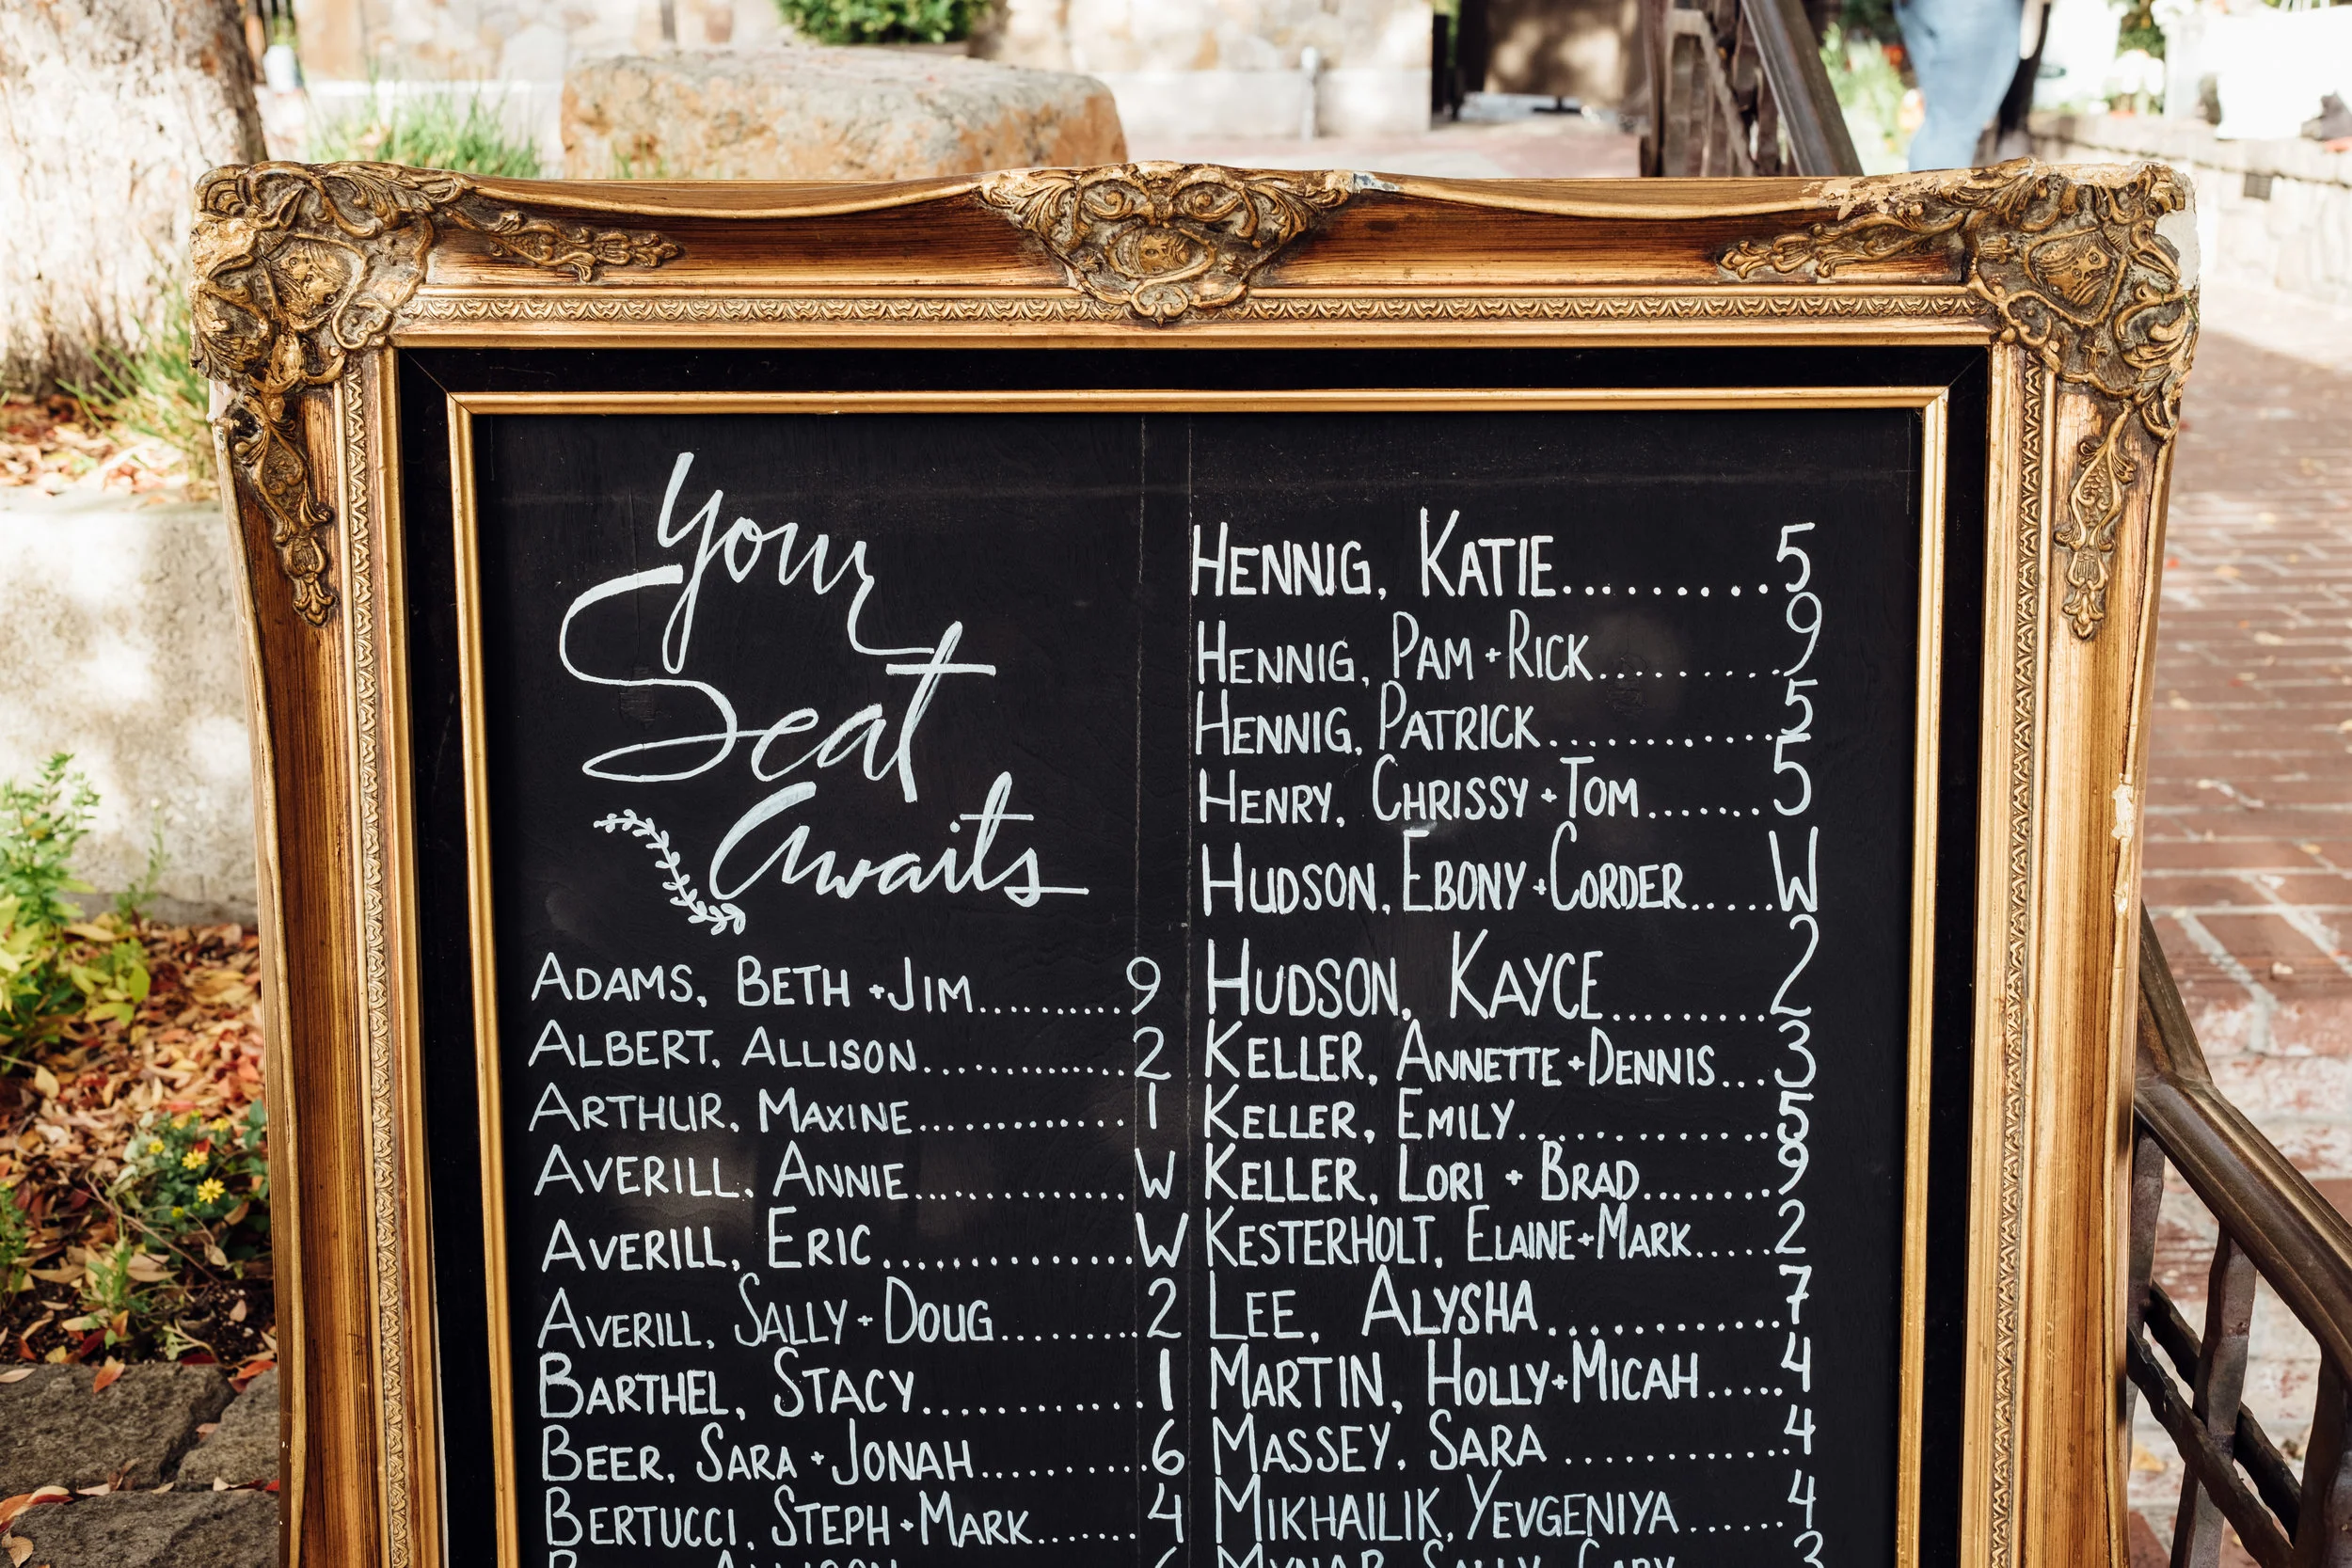 Your
Seat
Awaits
ADAMS, BETH + JIM..........9
ALBERT, ALLISON..............2
ARTHUR, MAXINE..............1
AVERILL, ANNIE..............W
AVERILL, ERIC..............W
AVERILL, SALLY + DOUG.........2
BARTHEL, STACY.............1
BEER, SARA + JONAH..........6
BERTUCCI, STEPH + MARK......4
ALLISON 6
HENNIG, KATIE.........5
HENNIG, PAM + RICK.........9
HENNIG, PATRICK............5
HENRY, CHRISSY + TOM.......5
HUDSON, EBONY + CORDER.....W
HUDSON, KAYCE.........2
KELLER, ANNETTE + DENNIS...3
KELLER, EMILY.............5
KELLER, LORI + BRAD........9
KESTERHOLT, ELAINE + MARK.....2
LEE, ALYSHA............7
MARTIN, HOLLY + MICAH.....4
MASSEY, SARA ...........4
MIKHAILIK, YEVGENIYA......4
SALLY GARY 3